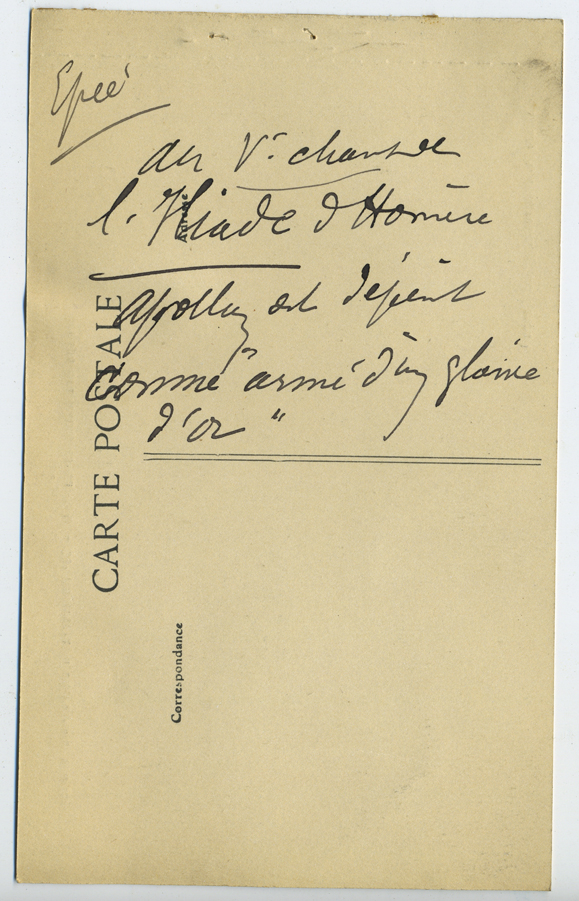 Epée
au Ve chant de
l'Iliade d'Homère
Apollon est dépeint
comme "armé d'un glaive
d'or"
CARTE POSTALE
Adresse
Correspondance